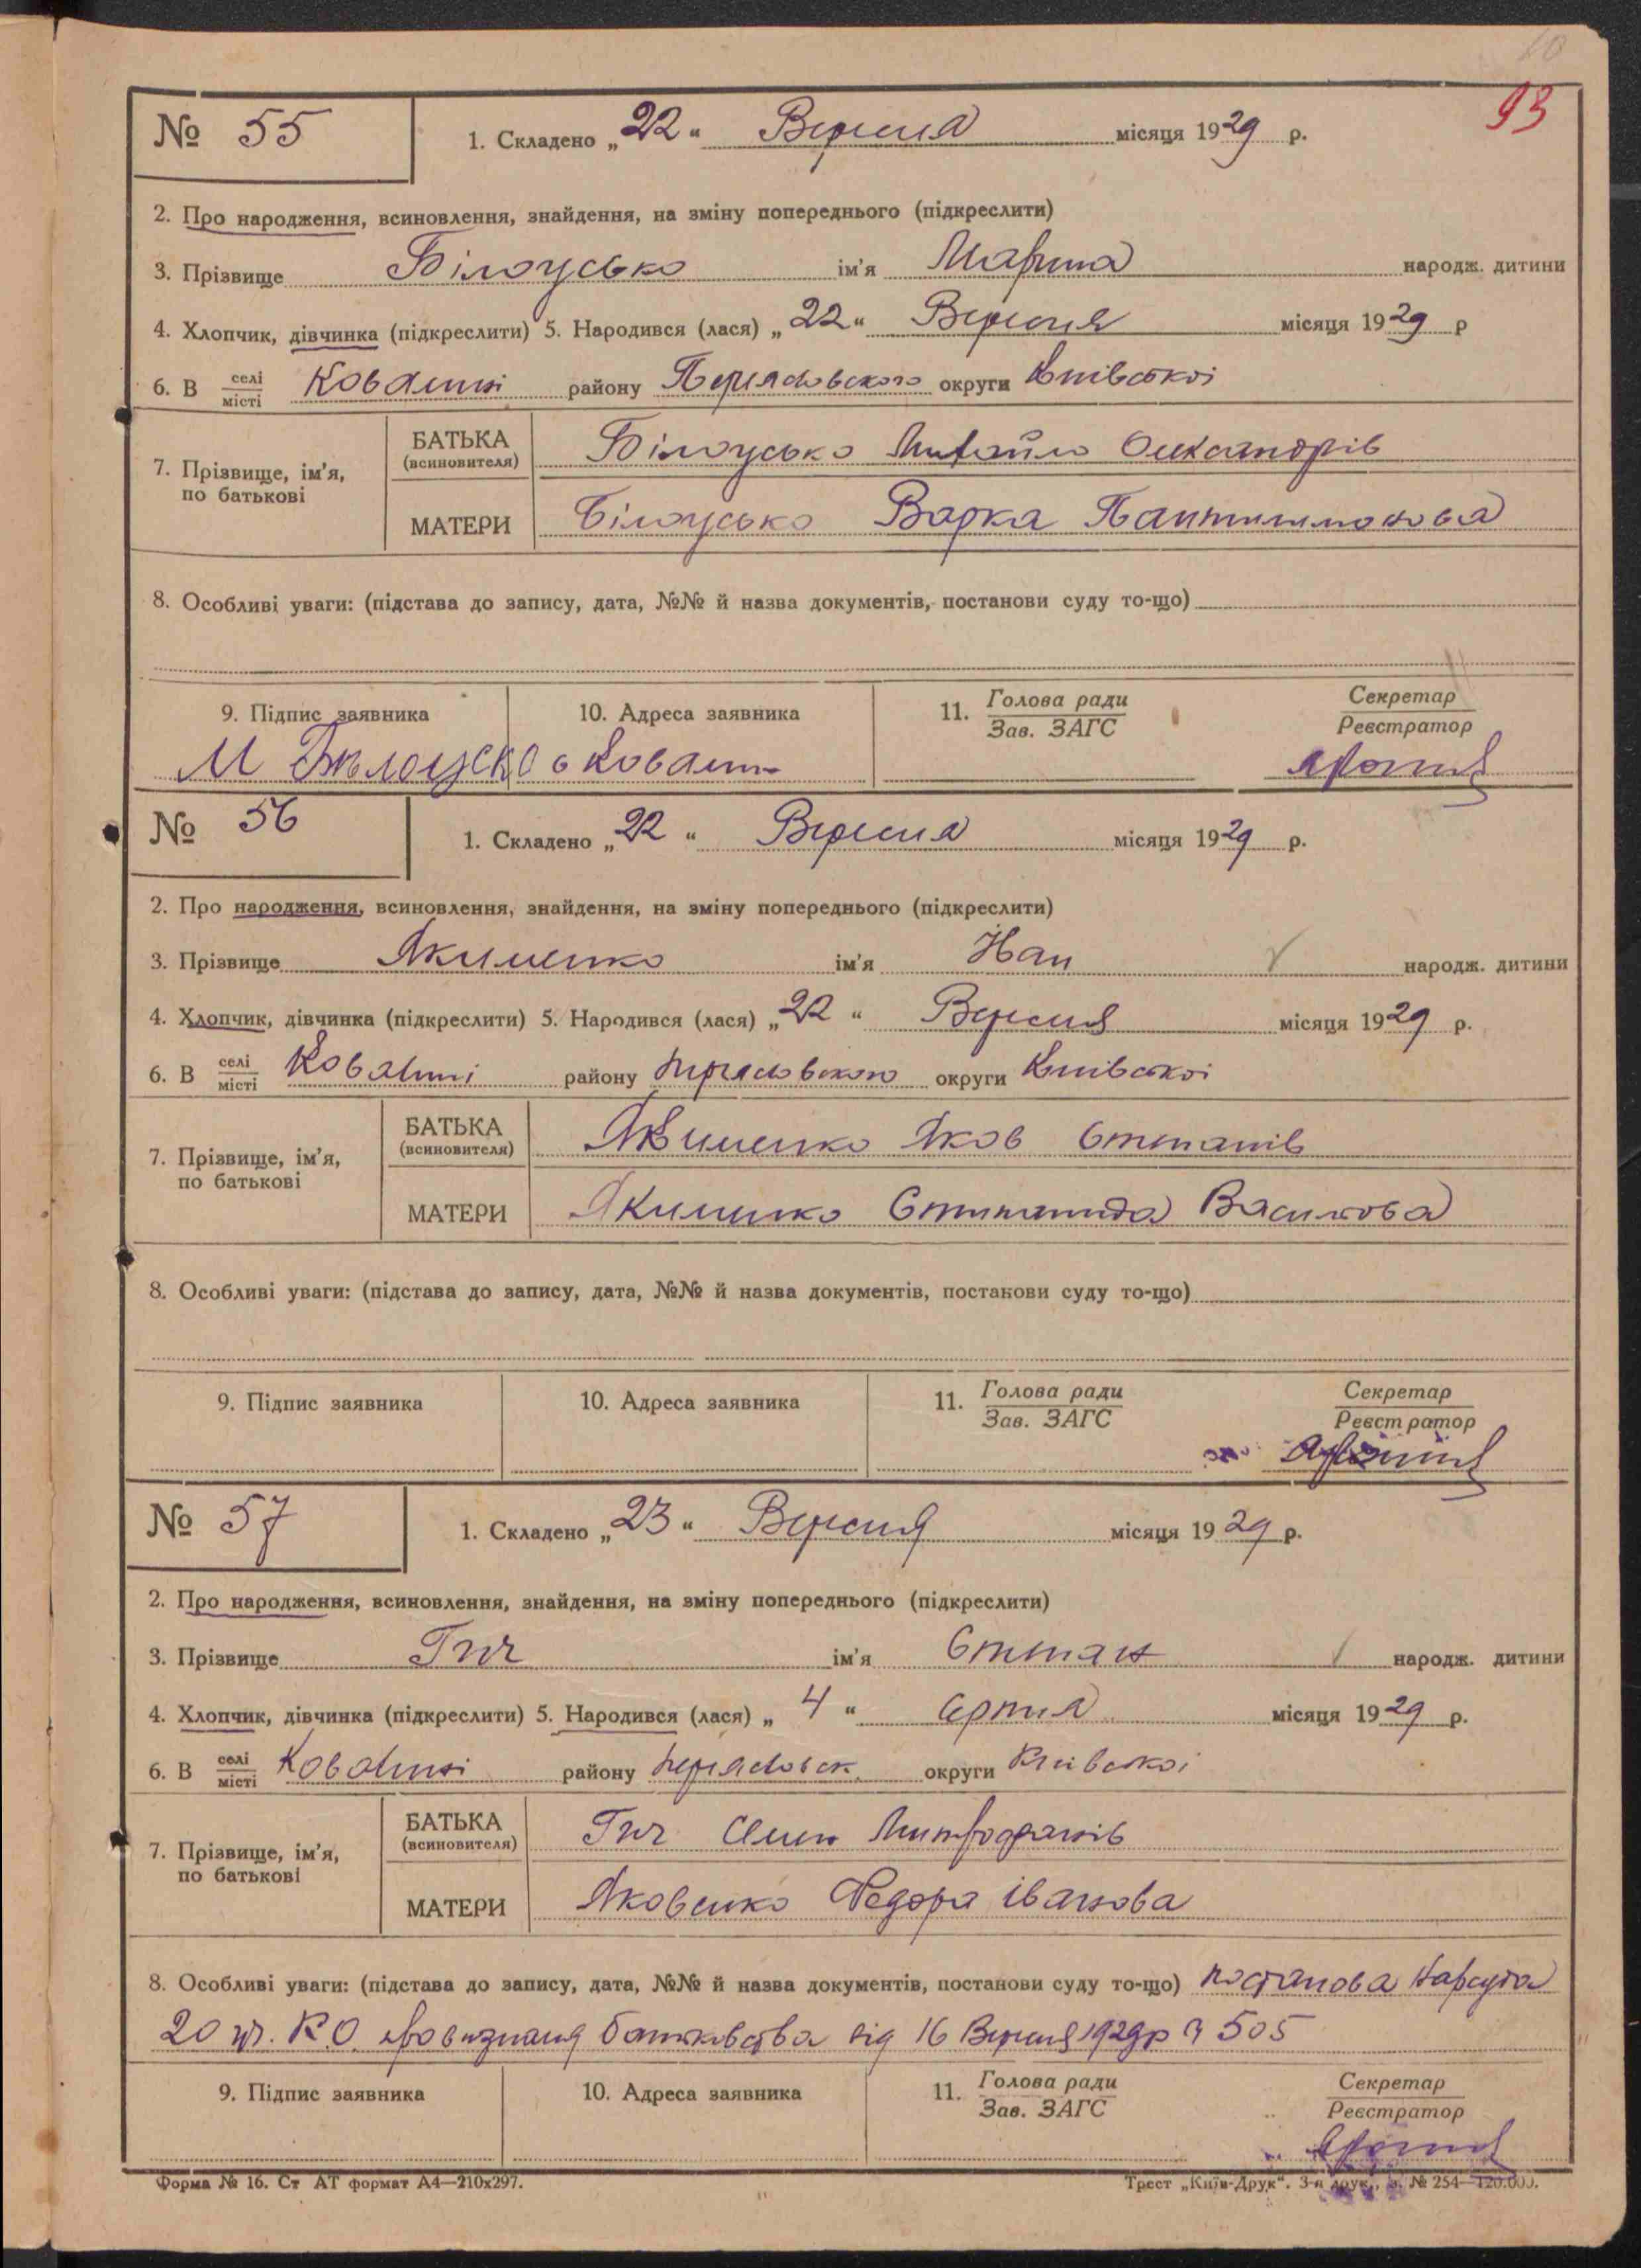 93
№ 55
1. Складено „22“ Вересня місяця 1929 р.
2. Про народження, всиновлення, знайдення, на зміну попереднього (підкреслити)
3. Прізвище Білоусько ім'я Марина народж. дитини
4. Хлопчик, дівчинка (підкреслити) 5. Народився (лася) „22“ Вересня місяця 1929 р
6. В селі місті Ковалині району Переяславського округи Київської
7. Прізвище, ім'я, по батькові
БАТЬКА (всиновителя) Білоусько Михайло Олександрів
МАТЕРИ Білоусько Варка Пантилимонова
8. Особливі уваги: (підстава до запису, дата, №№ й назва документів, постанови суду то-що)
9. Підпис заявника 10. Адреса заявника 11. Голова ради Зав. ЗАГС Секретар Реєстратор
М Бѣлоуско с Ковалин
№ 56
1. Складено „22“ Вересня місяця 1929 р.
2. Про народження, всиновлення, знайдення, на зміну попереднього (підкреслити)
3. Прізвище Якименко ім'я народж. дитини
4. Хлопчик, дівчинка (підкреслити) 5. Народився (лася) „22“ Вересня місяця 1929 р.
6. В селі місті Ковалині району Переяславського округи Київської
7. Прізвище, ім'я, по батькові
БАТЬКА (всиновителя) Якименко Яков Степанів
МАТЕРИ Якименко Степанида Василова
8. Особливі уваги: (підстава до запису, дата, №№ й назва документів, постанови суду то-що)
9. Підпис заявника 10. Адреса заявника 11. Голова ради Зав. ЗАГС Секретар Реєстратор
№ 57
1. Складено „23“ Вересня місяця 1929 р.
2. Про народження, всиновлення, знайдення, на зміну попереднього (підкреслити)
3. Прізвище Гич ім'я Степан народж. дитини
4. Хлопчик, дівчинка (підкреслити) 5. Народився (лася) „4“ Серпня місяця 1929 р.
6. В селі місті Ковалині району Переяславськ. округи Київської
7. Прізвище, ім'я, по батькові
БАТЬКА (всиновителя) Гич Семен Митрофанів
МАТЕРИ Яковенко Федора Іванова
8. Особливі уваги: (підстава до запису, дата, №№ й назва документів, постанови суду то-що) постанова Нарсуда
20 К.О. батьківства від 16 Вересня 1929р 505
9. Підпис заявника 10. Адреса заявника 11. Голова ради Зав. ЗАГС Секретар Реєстратор
Форма № 16. Ст АТ формат А4—210х297. Трест „Київ-Друк“. 3-я друк., з. № 254—120.000.